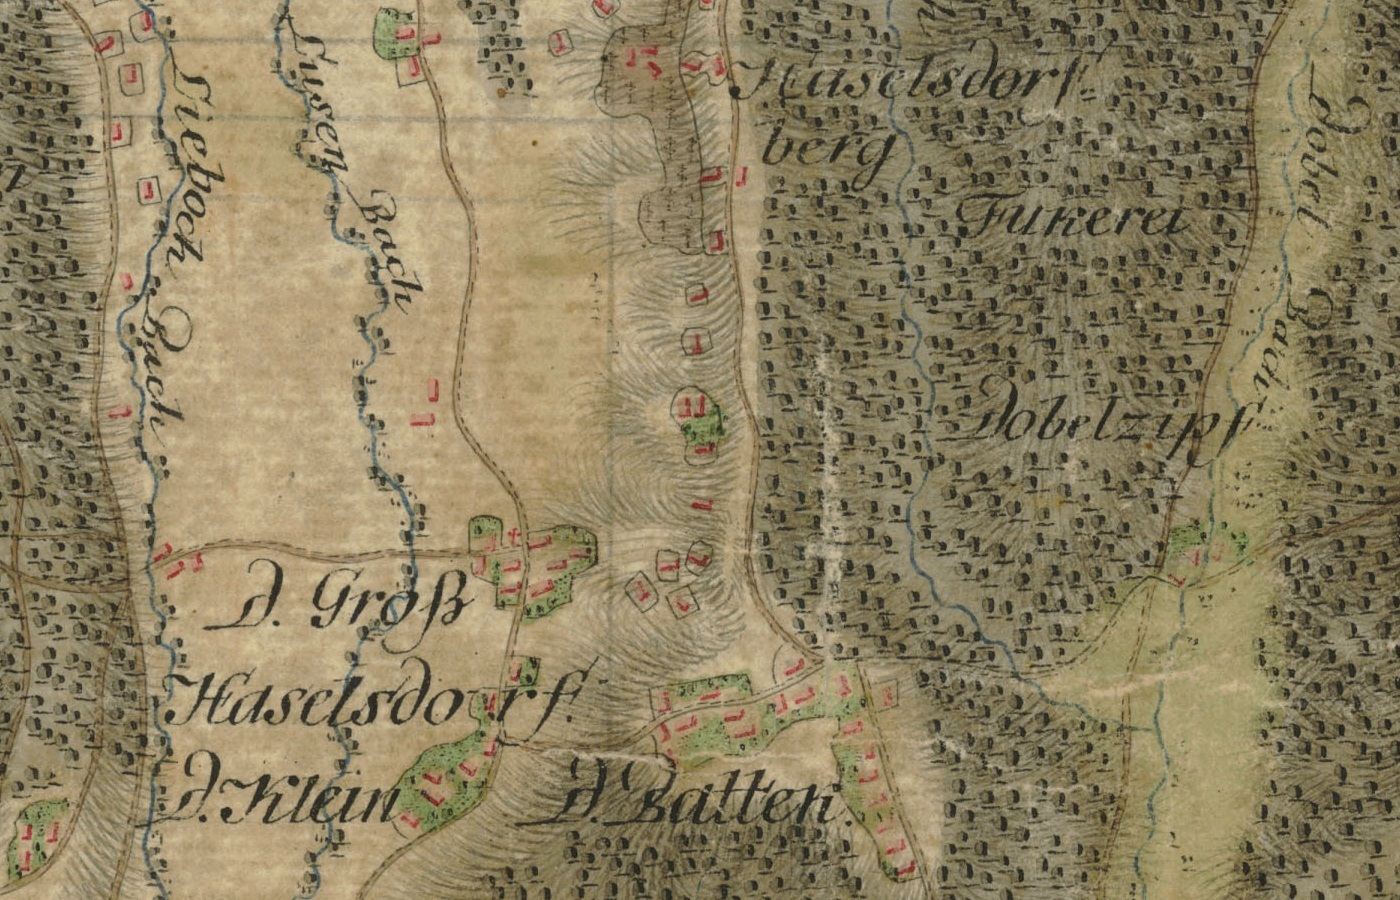 Lieboch Bach
Lusen Bach
Haselsdorf=
berg
Fukerei
Dobel Bach
Dobelzipf
d. Groß
Haselsdorf.
d. Klein
d. Batten.